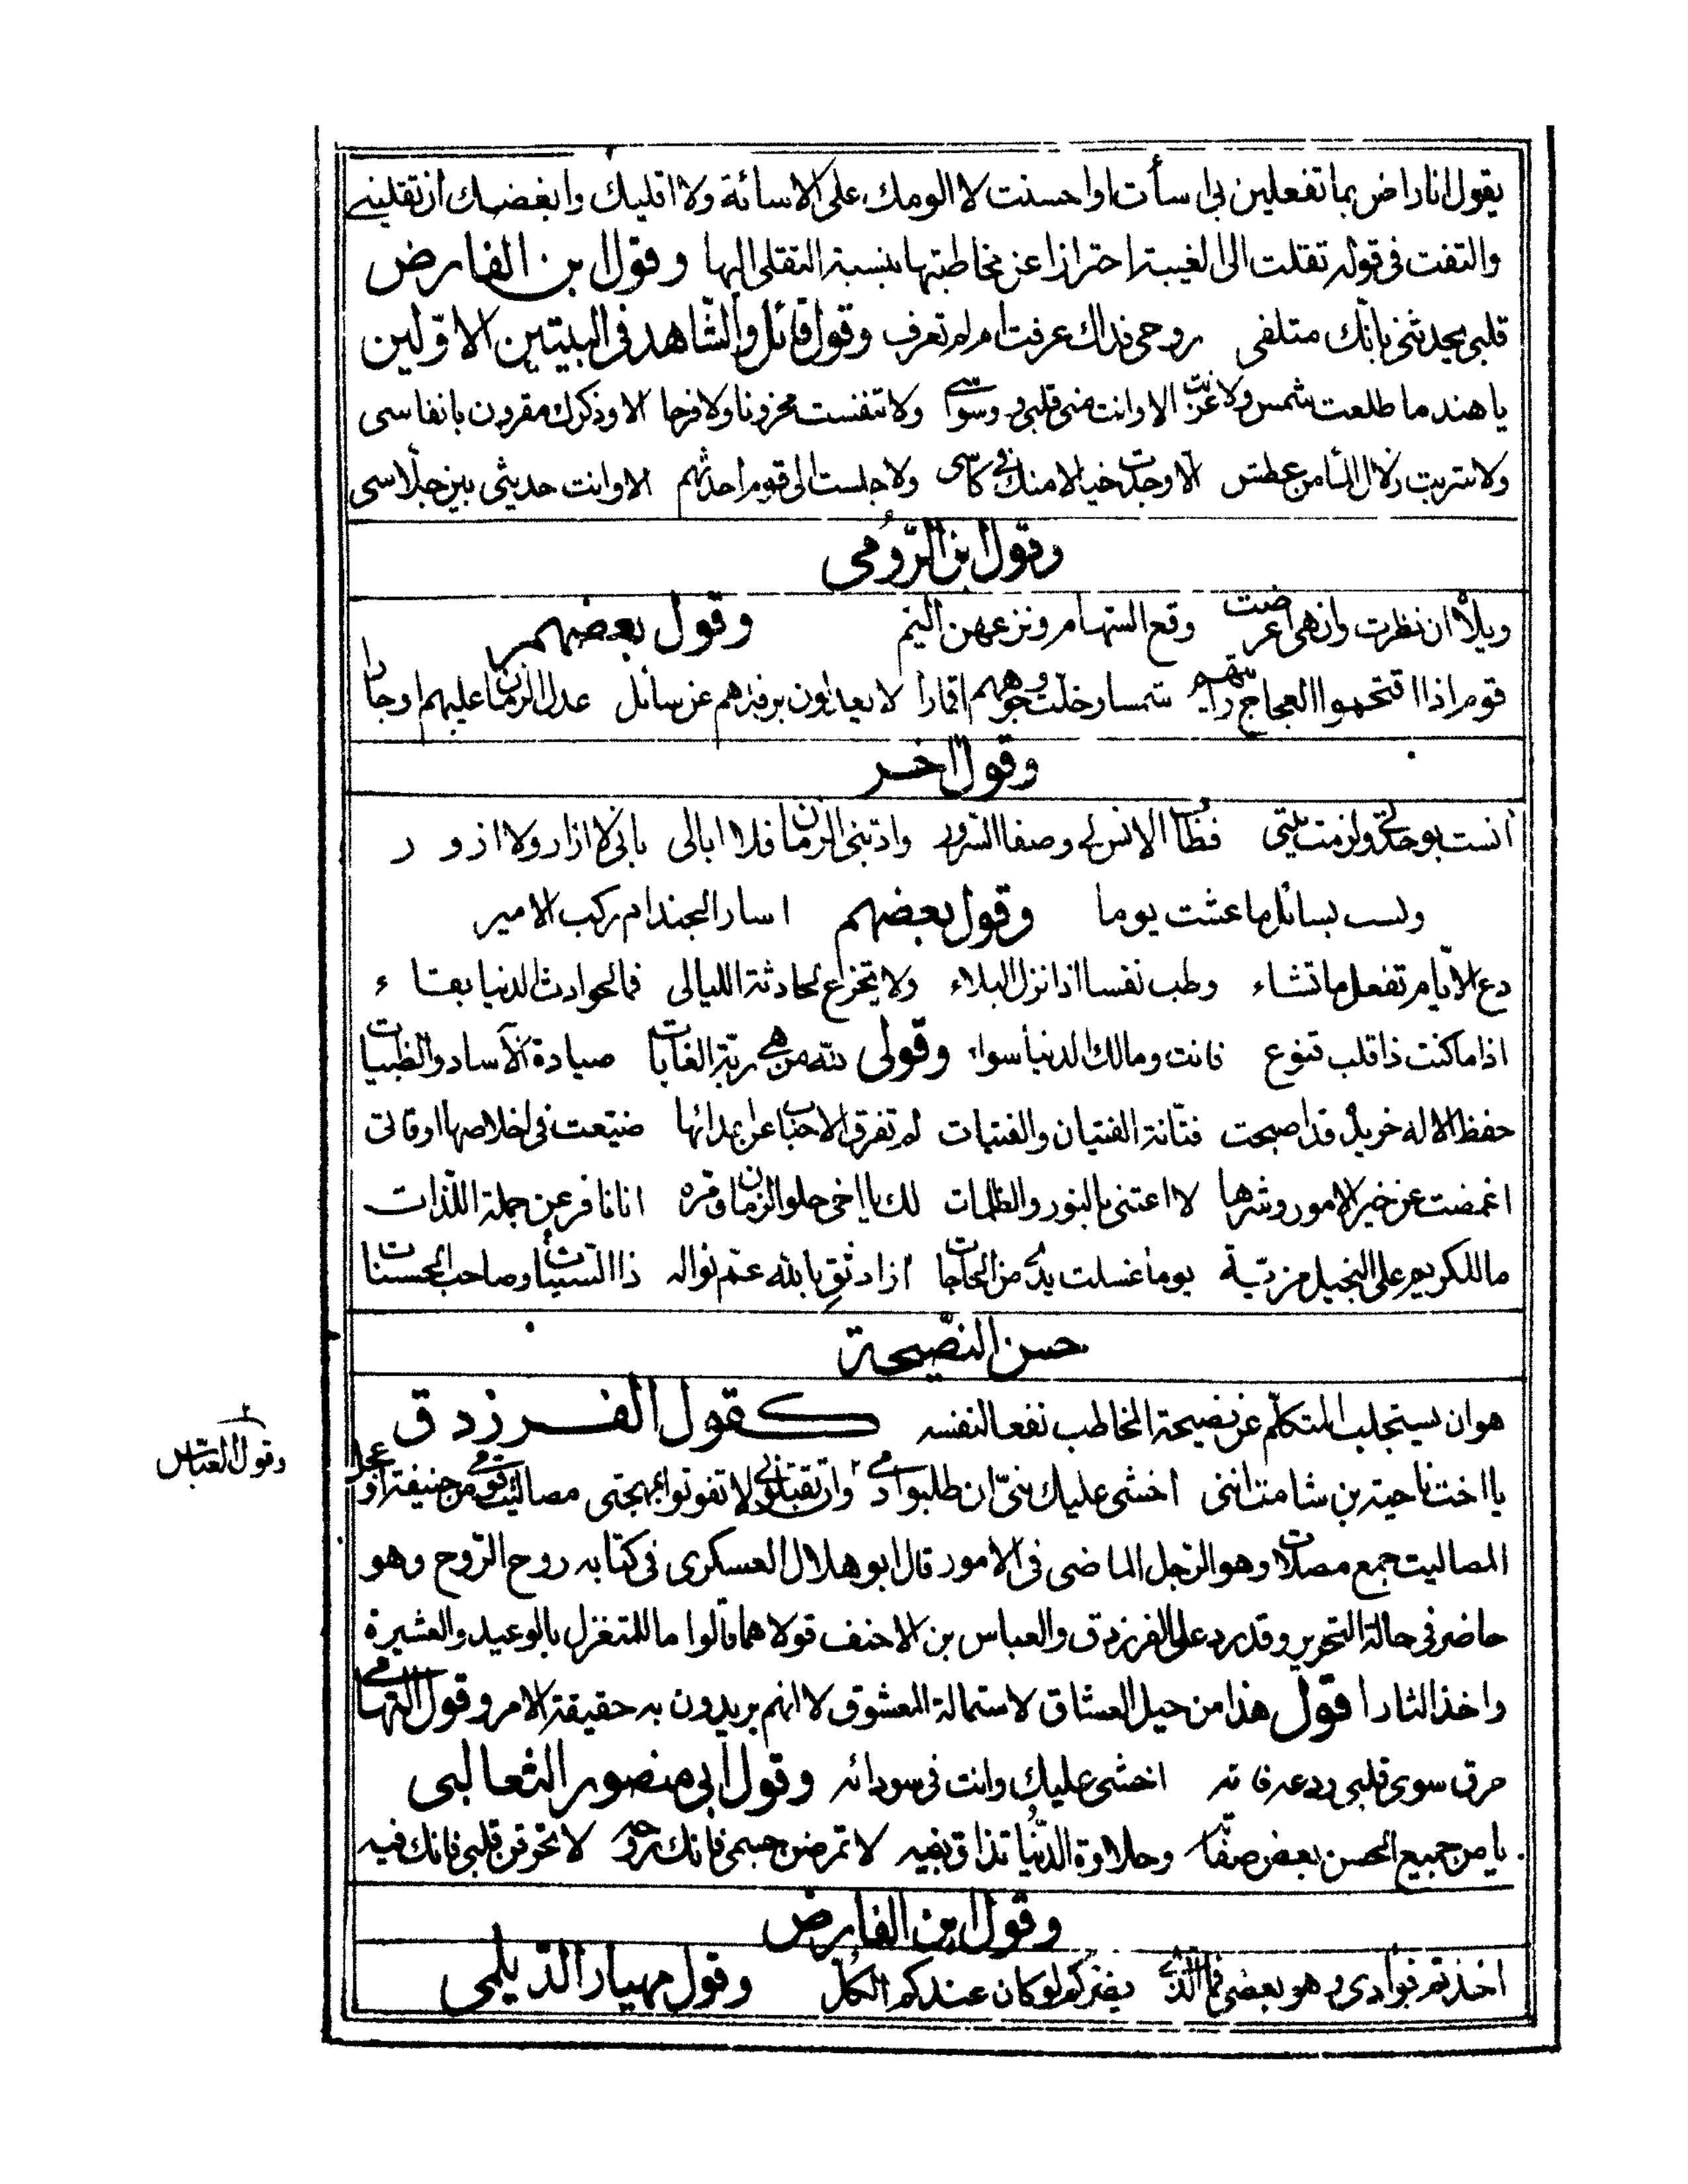 يقول انا راض بما تفعلين بى اسأت او احسنت لا الومك على الاسائة ولا اقليك وابغضك ان تقلينى
والتفت فى قوله تقلت الى الغيبة احترازا عن مخاطبتها بنسبة التقلى اليها وقول ابن الفارض
قلبى يحدثنى بانّك متلفى روحى فداك عرفت ام لم تعرف وقول قائل والشّاهد فى البيتين الاوّلين
يا هند ما طلعت شمس ولا غربت الا وانت منى قلبى ووسواسى ولا تنفست محزونا ولا فرحا الا وذكرك مقرون بانفاسى
ولا شربت زلال الماء من عطش الا وجدت خيالا منك فى كاسى ولا جلست الى قوم احدثهم الا وانت حديثى بين جلّاسى
وقول ابن الرّومى
ويلاه ان نظرت وان هى اعرضت وقع السّهام ونزعهن اليم وقول بعضهم
قوم اذا اقتحموا العجاج رأيتهم شمسا وخلت وجوههم اقمارا لا يعدلون برفدهم عن سائل عدل الزمان عليهم او جارا
وقول اخر
أنست بوحدتى ولزمت بيتى فطاب الانس لى وصفا السّرور وادبنى الزمان فلا ابالى بانى لا ازار ولا ازور
ولست بسائل ما عشت يوما وقول بعضهم اسار الجند ام ركب الامير
دع الايّام تفعل ما تشاء وطب نفسا اذا نزل البلاء ولا تجزع لحادثة الليالى فما لحوادث الدنيا بقاء
اذا ما كنت ذا قلب قنوع فانت ومالك الدنيا سواء وقولى لله من هى ربّة الغابات صيادة الآساد والظبيات
حفظ الاله خريدة قد اصبحت فتّانة الفتيان والفتيات لم تفرق الاحباب عن اعدائها ضيّعت فى اخلاصها اوقاتى
اغمضت عن خير الامور وشرها لا اعتنى بالنور والظلمات لك يا اخى حلو الزمان ومره انا نافر عن جملة اللّذات
ما للكريم على البخيل مزيّة يوما غسلت يدىّ من الحاجات ازاد ثق بالله عمّ نواله ذا السيئات وصاحب الحسنات
حسن النصّيحة
هو ان يستجلب المتكلّم عن نصيحة المخاطب نفعا لنفسه كقول الفرزدق
يا اخت ناحية بن شامت اننى اخشى عليك بنىّ ان طلبوا دمى
وقول العبّاس
وان تقتلونى لا تفوتوا بمهجتى مصاليت قومى من حنيفة او عجل
المصاليت جمع مصلات وهو الرّجل الماضى فى الامور قال ابو هلال العسكرى فى كتابه روح الرّوح وهو
حاضر فى حالة التحرير وقد رد على الفرزدق والعباس بن الاحنف قولاهما قالوا ما للمتغزل بالوعيد والعشيرة
واخذ الثار اقول هذا من حيل العشاق لاستمالة المعشوق لا انهم يريدون به حقيقة الامر وقول التهامى
حرق سوى قلبى ودعه فانه اخشى عليك وانت فى سودائه وقول ابى منصور الثعالبى
يا من جميع الحسن بعض صفاته وحلاوة الدّنيا تذاق بفيه لا تمرضن جسمى فانك روحه لا تحرقن قلبى فانك فيه
وقول ابن الفارض
اخذتم فؤادى وهو بعضى فما الّذى يضركم لو كان عندكم الكلّ وقول مهيار الدّيلمى